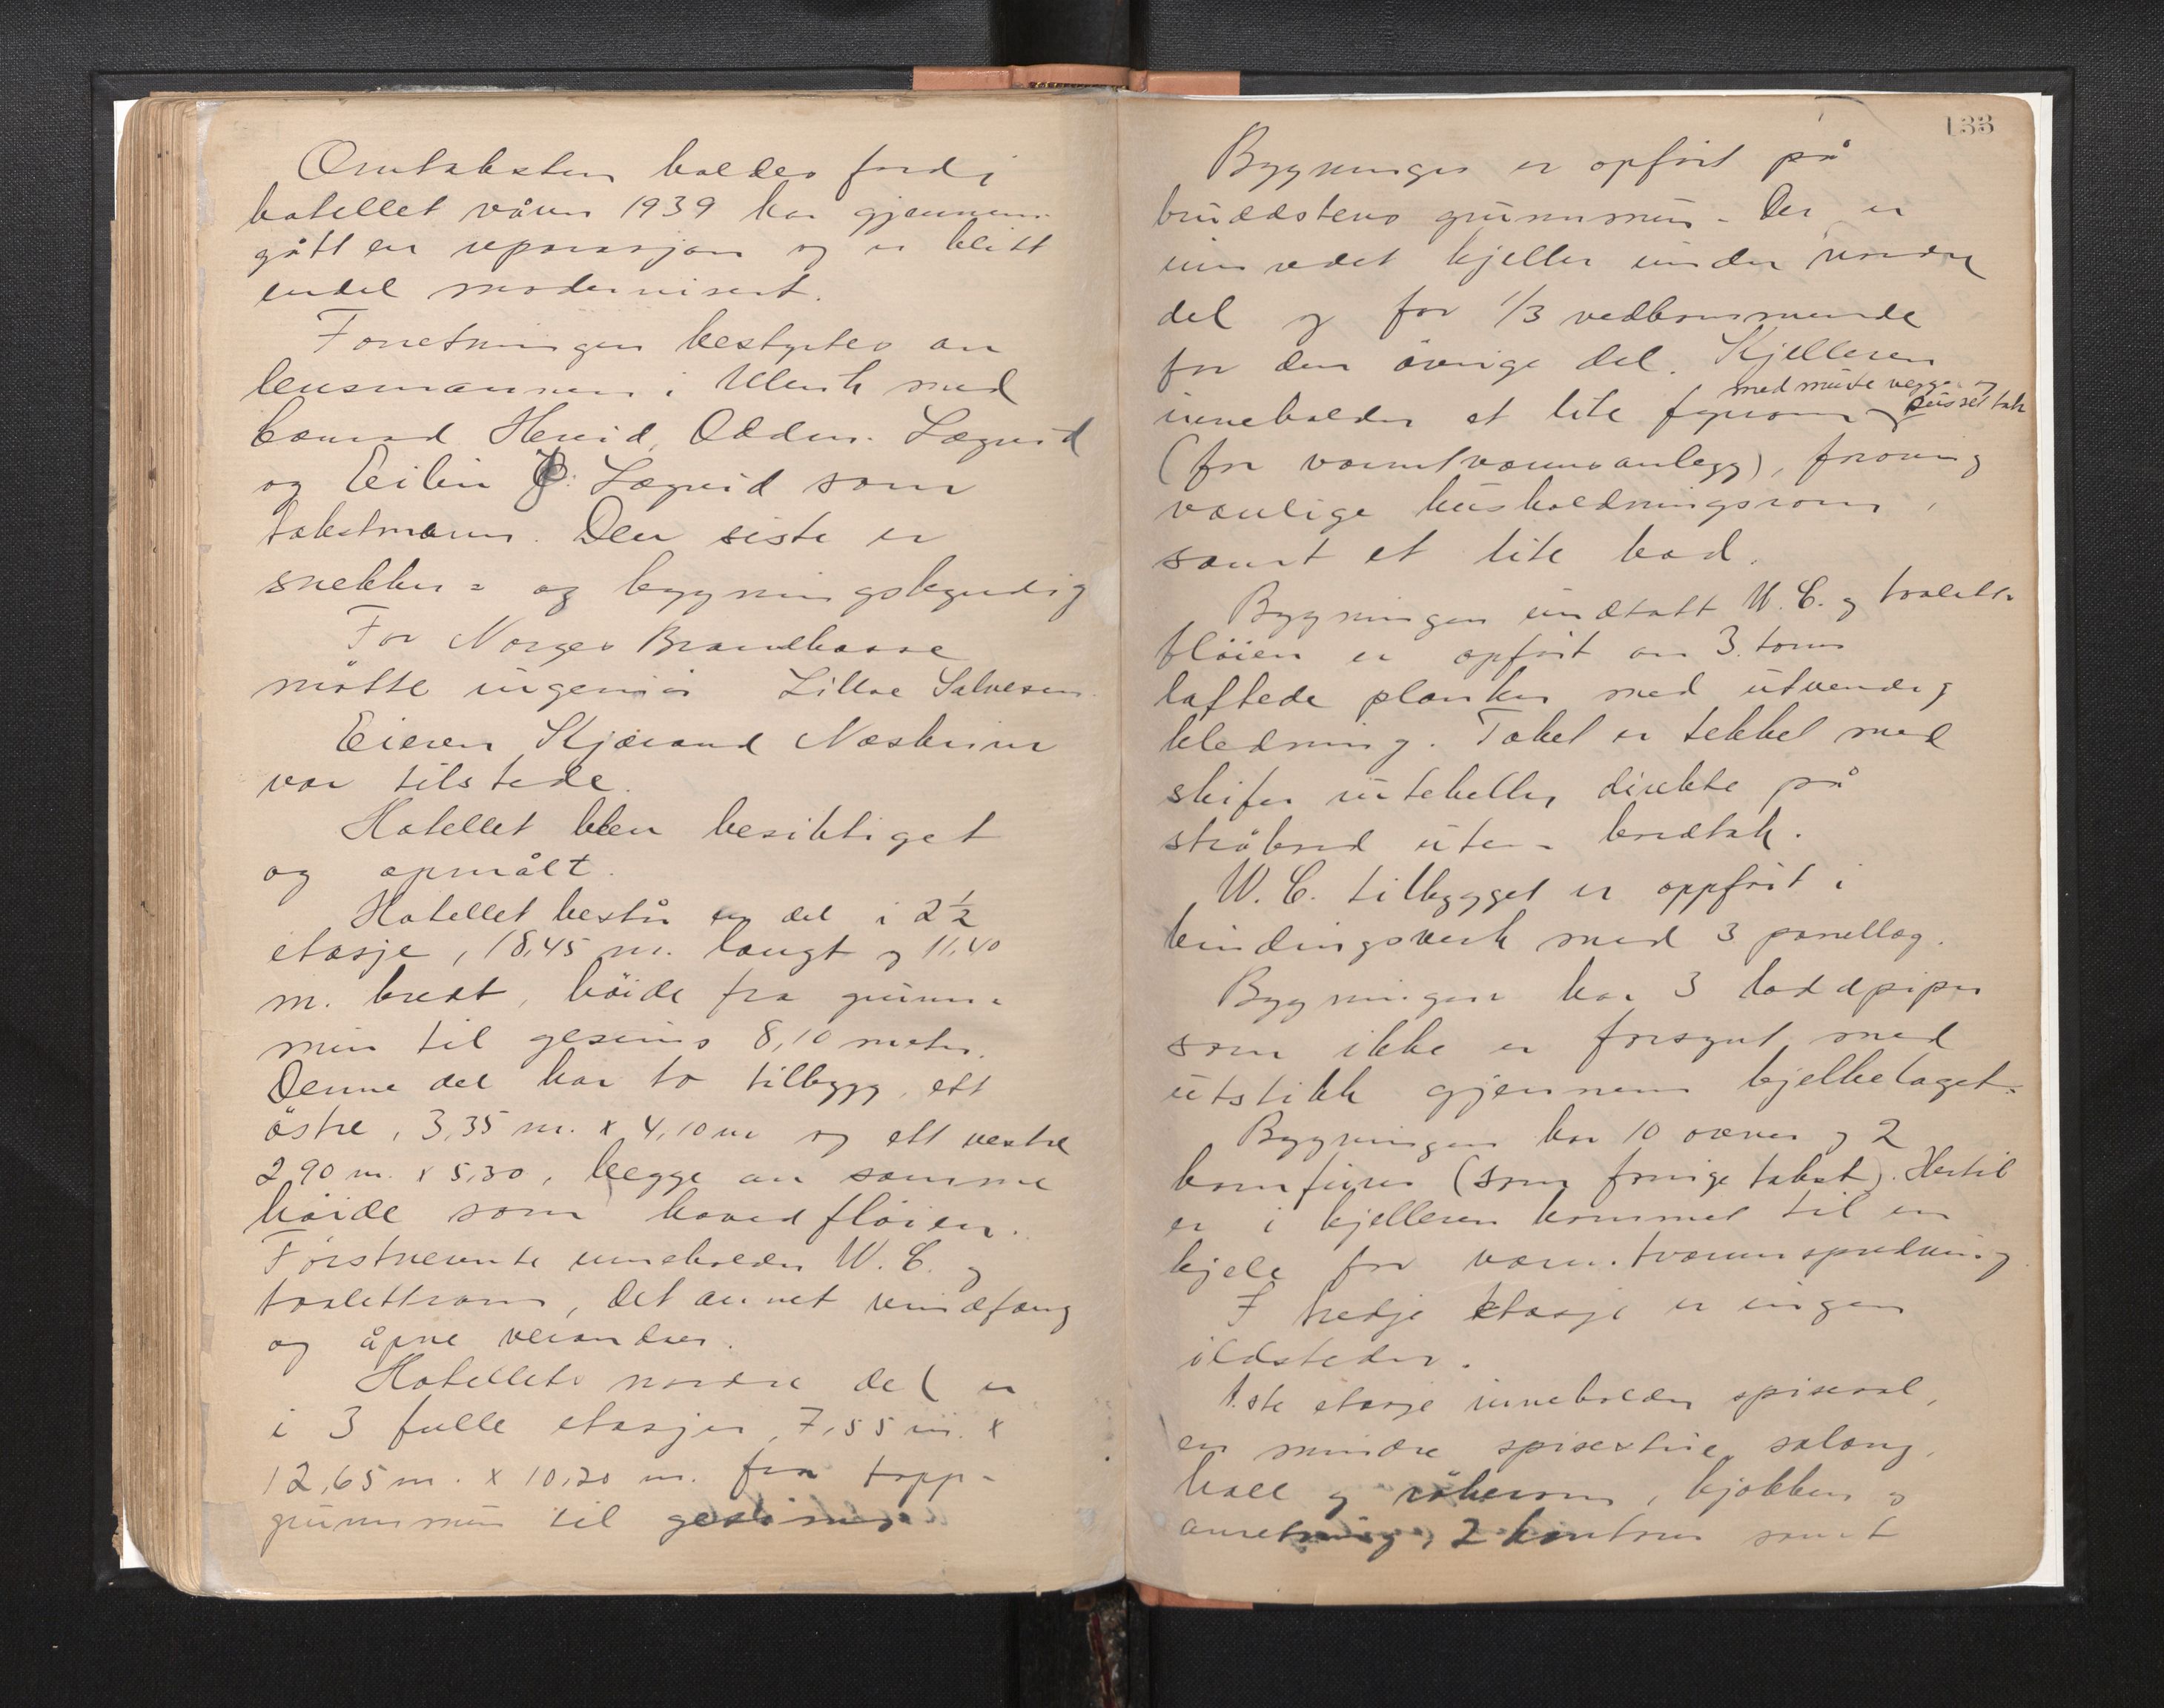 Omtaksten holdes fordi
hotellet våren 1939 har gjennem-
gått en reparasjon og er blitt
endel modernisert.
Forretningen bestyrtes av
lensmannen i Ulvik med
Odden. Lægreid
og Eilin Lægreid som
takstmenn. Den siste er
snekker- og bygningskyndig
For Norges Brandkasse
møtte ingeniør Lilloe Salvesen.
Eieren Kjærand Nesheim
var tilstede.
Hotellet blev besiktiget
og opmålt.
Hotellet består en del i 2 ½
etasje, 18,45 m. langt og 11,40
m. bredt, høide fra grunn-
mur til gesims 8,10 meter.
Denne del har to tilbygg, ett
østre, 3,35 m. x 4,10 m og ett vestre
2,90 m. x 5,30, begge av samme
høide som hovedfløien.
Førstnevnte inneholder W.C. og
toalettrom, det annet vindfang
og åpne verandaer.
Hotellets nordre del er
i 3 fulle etasjer, 7,55 m. x
12,65 m. x 10,20 m. fra topp-
grunnmur til gesims
133
Bygningen er opført på
bruddstens grunnmur. Der er
innredet kjeller under nordre
del og for 1/3 vedkommende
for den øvrige del. Kjelleren
med murte vegger og
inneholder et lite fyrrom pusset tak
(for varmtvannsanlegg), forøvrig
vanlige husholdningsrom,
samt et lite bad.
Bygningen undtatt W.C. og toalett-
fløien er opført av 3. toms
laftede planker med utvendig
kledning. Taket er tekket med
skifer direkte på
uten bordtak.
W.C. tilbygget er oppført i
bindingsverk med 3 panellag.
Bygningen har 3 loddpiper
som ikke er forsynt med
utstikk gjennem bjelkelaget.
Bygningen har 10 ovner og 2
komfyrer (som forrige takst). Hertil
er i kjelleren kommet til en
kjele for varmtvannspredning
I tredje etasje er ingen
ildsteder.
1ste etasje inneholder spisesal,
en mindre spisestue, salong,
hall og røkerom, kjøkken og
anretning, 2 kontorer samt